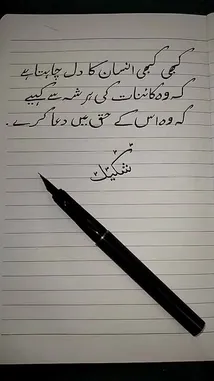 کبھی کبھی انسان کا دل چاہتا ہے
کہ وہ کائنات کی ہر شے سے کہے
کہ وہ اس کے حق میں دعا کرے۔
شکیل